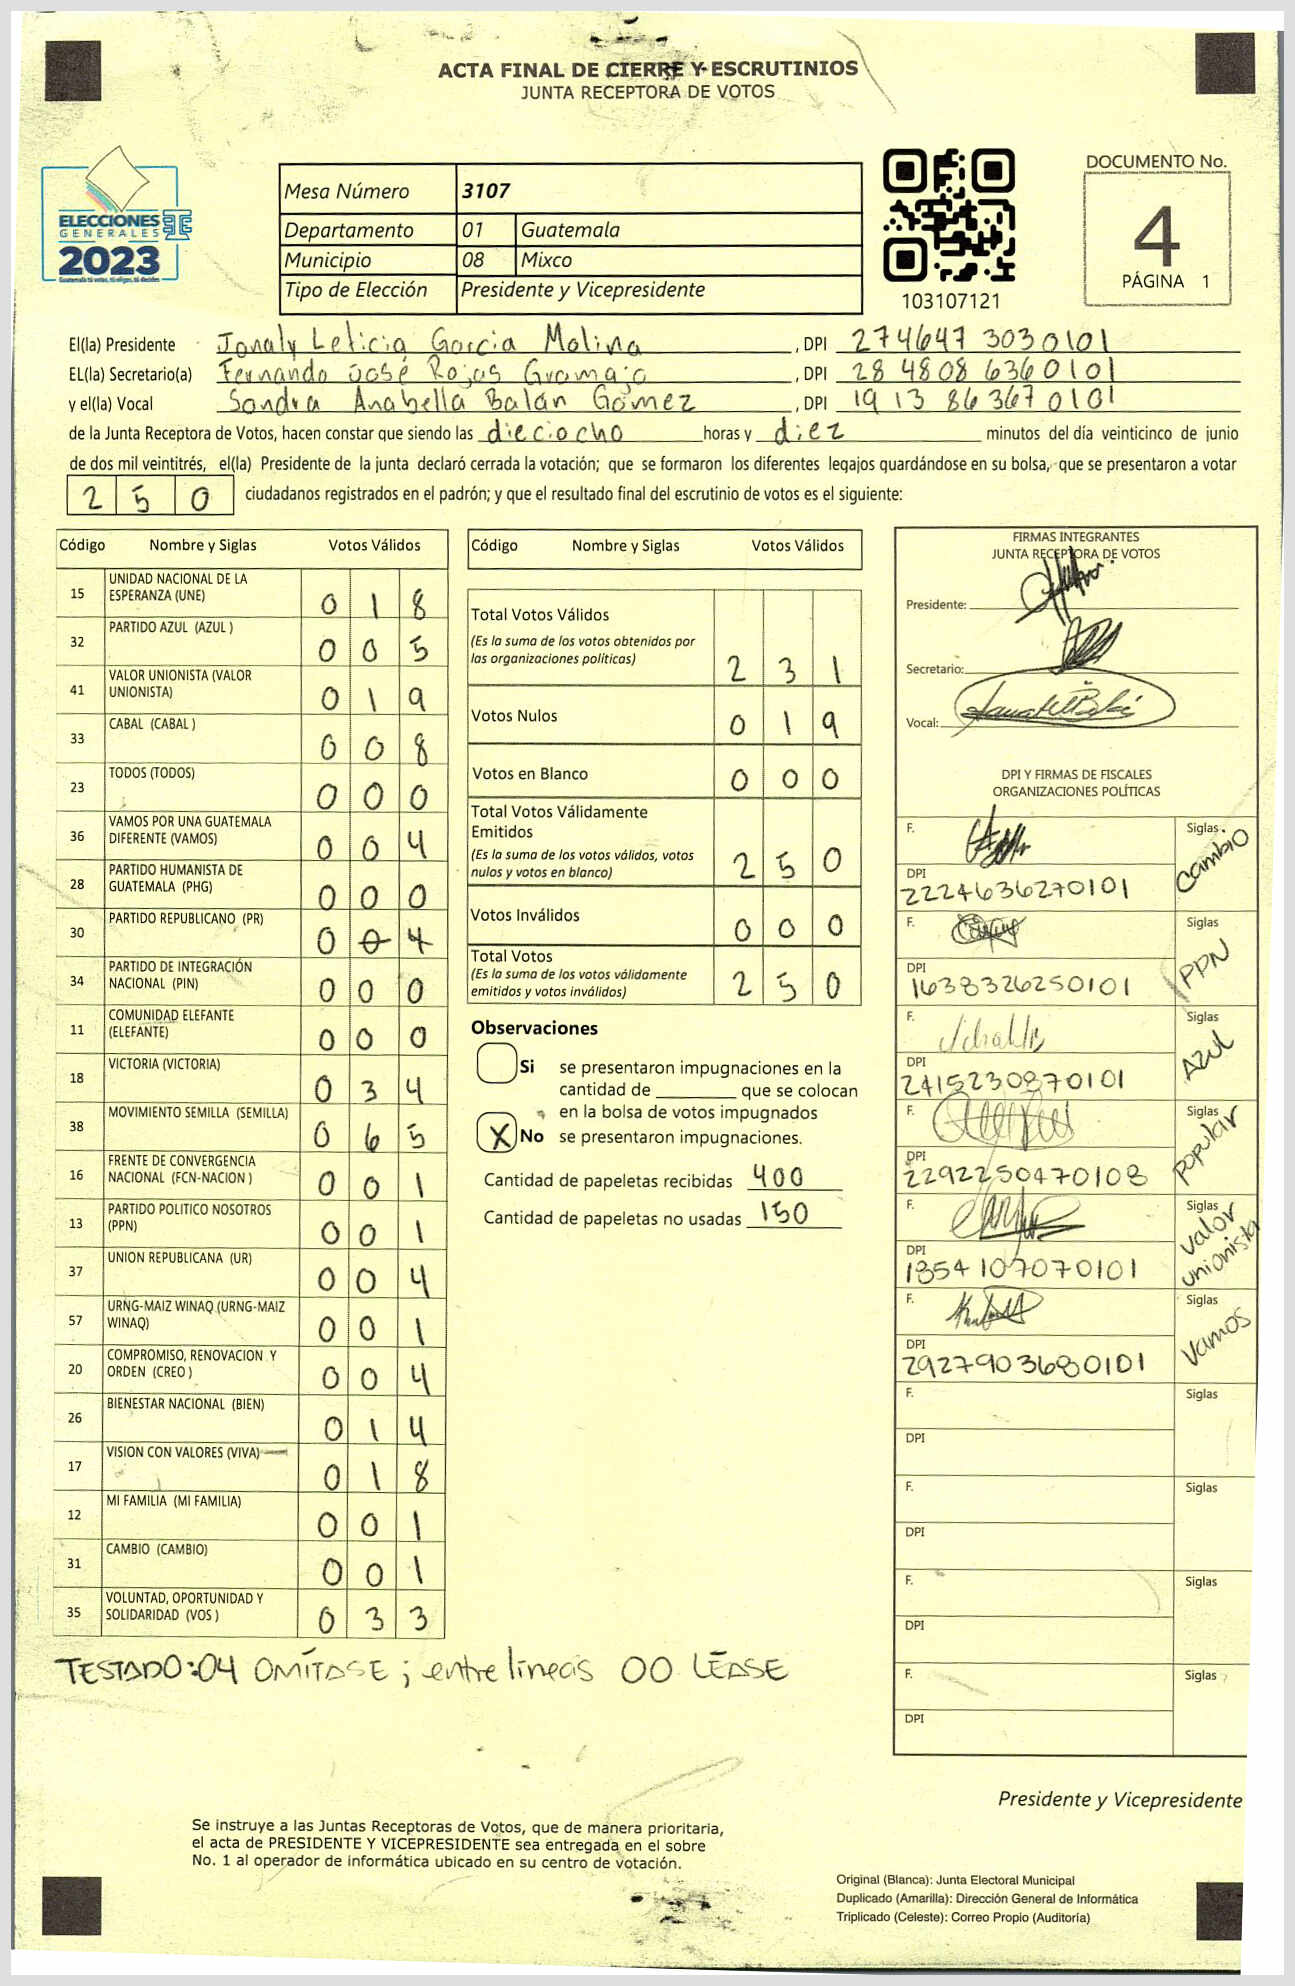 ACTA FINAL DE CIERRE Y ESCRUTINIOS
JUNTA RECEPTORA DE VOTOS
ELECCIONES
GENERALES
2023
Guatemala tú votas, tú eliges, tú decides
Mesa Número 3107
Departamento 01 Guatemala
Municipio 08 Mixco
Tipo de Elección Presidente y Vicepresidente
103107121
DOCUMENTO No.
4
PÁGINA 1
El(la) Presidente Jonaly Leticia Garcia Molina, DPI 274647 3030101
EL(la) Secretario(a) Fernando José Rojas Gramajo, DPI 28 4808 6360101
y el(la) Vocal Sandra Anabella Balán Gómez, DPI 1913 86367 0101
de la Junta Receptora de Votos, hacen constar que siendo las dieciocho horas y diez minutos del día veinticinco de junio
de dos mil veintitrés, el(la) Presidente de la junta declaró cerrada la votación; que se formaron los diferentes legajos guardándose en su bolsa, que se presentaron a votar
250 ciudadanos registrados en el padrón; y que el resultado final del escrutinio de votos es el siguiente:
Código Nombre y Siglas Votos Válidos
15 UNIDAD NACIONAL DE LA ESPERANZA (UNE) 018
32 PARTIDO AZUL (AZUL ) 005
41 VALOR UNIONISTA (VALOR UNIONISTA) 019
33 CABAL (CABAL ) 008
23 TODOS (TODOS) 000
36 VAMOS POR UNA GUATEMALA DIFERENTE (VAMOS) 004
28 PARTIDO HUMANISTA DE GUATEMALA (PHG) 000
30 PARTIDO REPUBLICANO (PR) 004
34 PARTIDO DE INTEGRACIÓN NACIONAL (PIN) 000
11 COMUNIDAD ELEFANTE (ELEFANTE) 000
18 VICTORIA (VICTORIA) 034
38 MOVIMIENTO SEMILLA (SEMILLA) 065
16 FRENTE DE CONVERGENCIA NACIONAL (FCN-NACION ) 001
13 PARTIDO POLITICO NOSOTROS (PPN) 001
37 UNION REPUBLICANA (UR) 004
57 URNG-MAIZ WINAQ (URNG-MAIZ WINAQ) 001
20 COMPROMISO, RENOVACION Y ORDEN (CREO ) 004
26 BIENESTAR NACIONAL (BIEN) 014
17 VISION CON VALORES (VIVA) 018
12 MI FAMILIA (MI FAMILIA) 001
31 CAMBIO (CAMBIO) 001
35 VOLUNTAD, OPORTUNIDAD Y SOLIDARIDAD (VOS ) 033
TESTADO:04 OMÍTASE; entre líneas 00 LÉASE
Código Nombre y Siglas Votos Válidos
Total Votos Válidos
(Es la suma de los votos obtenidos por
las organizaciones políticas) 231
Votos Nulos 019
Votos en Blanco 000
Total Votos Válidamente
Emitidos
(Es la suma de los votos válidos, votos
nulos y votos en blanco) 250
Votos Inválidos 000
Total Votos
(Es la suma de los votos válidamente
emitidos y votos inválidos) 250
Observaciones
Si se presentaron impugnaciones en la
cantidad de ________ que se colocan
en la bolsa de votos impugnados
X No se presentaron impugnaciones.
Cantidad de papeletas recibidas 400
Cantidad de papeletas no usadas 150
FIRMAS INTEGRANTES
JUNTA RECEPTORA DE VOTOS
Presidente:
Secretario:
Vocal:
DPI Y FIRMAS DE FISCALES
ORGANIZACIONES POLÍTICAS
F. Siglas: cambio
DPI 2224636270101
F. Siglas PPN
DPI 1638326250101
F. Siglas AZUL
DPI 2415230870101
F. Siglas popular
DPI 2292250470108
F. Siglas valor unionista
DPI 1354107070101
F. Siglas Vamos
DPI 2927903680101
F. Siglas
DPI
F. Siglas
DPI
F. Siglas
DPI
F. Siglas
DPI
Presidente y Vicepresidente
Se instruye a las Juntas Receptoras de Votos, que de manera prioritaria,
el acta de PRESIDENTE Y VICEPRESIDENTE sea entregada en el sobre
No. 1 al operador de informática ubicado en su centro de votación.
Original (Blanca): Junta Electoral Municipal
Duplicado (Amarilla): Dirección General de Informática
Triplicado (Celeste): Correo Propio (Auditoría)